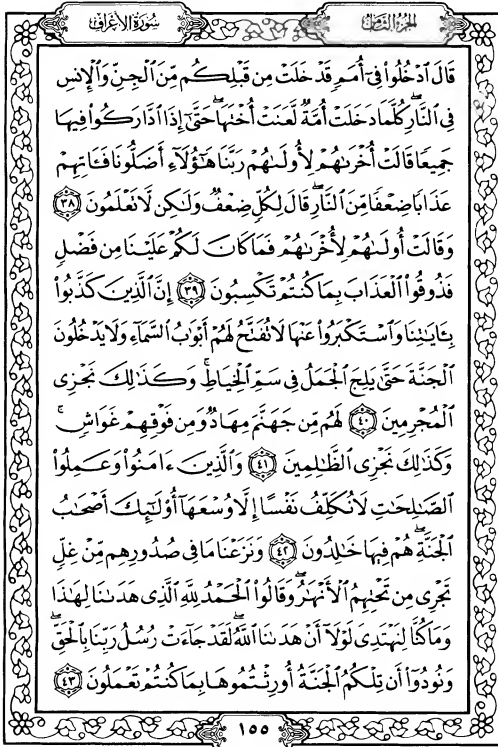 سُورَةُ الأَعْرَافِ الجُزْءُ الثَّامِنُ
قَالَ ٱدْخُلُوا۟ فِىٓ أُمَمٍ قَدْ خَلَتْ مِن قَبْلِكُم مِّنَ ٱلْجِنِّ وَٱلْإِنسِ
فِى ٱلنَّارِ ۖ كُلَّمَا دَخَلَتْ أُمَّةٌ لَّعَنَتْ أُخْتَهَا ۖ حَتَّىٰٓ إِذَا ٱدَّارَكُوا۟ فِيهَا
جَمِيعًا قَالَتْ أُخْرَىٰهُمْ لِأُولَىٰهُمْ رَبَّنَا هَٰٓؤُلَآءِ أَضَلُّونَا فَـَٔاتِهِمْ
عَذَابًا ضِعْفًا مِّنَ ٱلنَّارِ ۖ قَالَ لِكُلٍّ ضِعْفٌ وَلَٰكِن لَّا تَعْلَمُونَ ٣٨
وَقَالَتْ أُولَىٰهُمْ لِأُخْرَىٰهُمْ فَمَا كَانَ لَكُمْ عَلَيْنَا مِن فَضْلٍ
فَذُوقُوا۟ ٱلْعَذَابَ بِمَا كُنتُمْ تَكْسِبُونَ ٣٩ إِنَّ ٱلَّذِينَ كَذَّبُوا۟
بِـَٔايَٰتِنَا وَٱسْتَكْبَرُوا۟ عَنْهَا لَا تُفَتَّحُ لَهُمْ أَبْوَٰبُ ٱلسَّمَآءِ وَلَا يَدْخُلُونَ
ٱلْجَنَّةَ حَتَّىٰ يَلِجَ ٱلْجَمَلُ فِى سَمِّ ٱلْخِيَاطِ ۚ وَكَذَٰلِكَ نَجْزِى
ٱلْمُجْرِمِينَ ٤٠ لَهُم مِّن جَهَنَّمَ مِهَادٌ وَمِن فَوْقِهِمْ غَوَاشٍ ۚ
وَكَذَٰلِكَ نَجْزِى ٱلظَّٰلِمِينَ ٤١ وَٱلَّذِينَ ءَامَنُوا۟ وَعَمِلُوا۟
ٱلصَّٰلِحَٰتِ لَا نُكَلِّفُ نَفْسًا إِلَّا وُسْعَهَآ أُو۟لَٰٓئِكَ أَصْحَٰبُ
ٱلْجَنَّةِ ۖ هُمْ فِيهَا خَٰلِدُونَ ٤٢ وَنَزَعْنَا مَا فِى صُدُورِهِم مِّنْ غِلٍّ
تَجْرِى مِن تَحْتِهِمُ ٱلْأَنْهَٰرُ ۖ وَقَالُوا۟ ٱلْحَمْدُ لِلَّهِ ٱلَّذِى هَدَىٰنَا لِهَٰذَا
وَمَا كُنَّا لِنَهْتَدِىَ لَوْلَآ أَنْ هَدَىٰنَا ٱللَّهُ ۖ لَقَدْ جَآءَتْ رُسُلُ رَبِّنَا بِٱلْحَقِّ ۖ
وَنُودُوٓا۟ أَن تِلْكُمُ ٱلْجَنَّةُ أُورِثْتُمُوهَا بِمَا كُنتُمْ تَعْمَلُونَ ٤٣
١٥٥